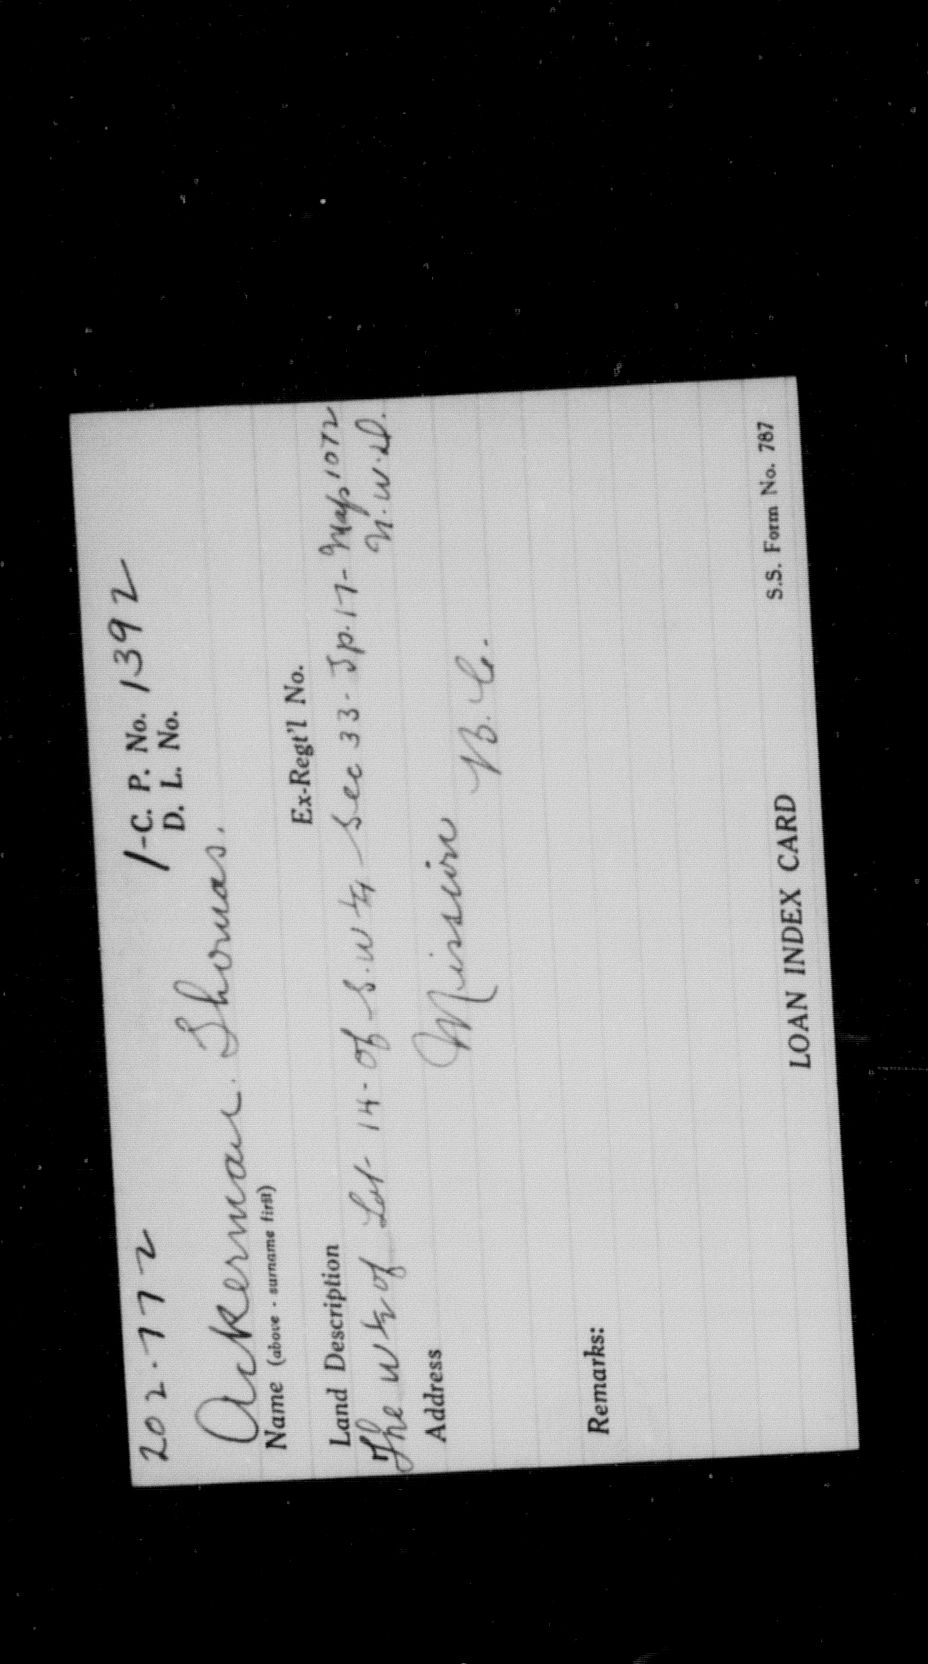 202-772
1-C. P. No. 1392
D. L. No.
Ackerman. Thomas.
Name (above - surname first)
Ex-Regt'l No.
Land Description
The W ½ of Lot 14 - of S.W ¼ Sec 33 - Tp. 17 - Map 1072
N.W.D.
Address
Mission B.C.
Remarks:
LOAN INDEX CARD
S.S. Form No. 787